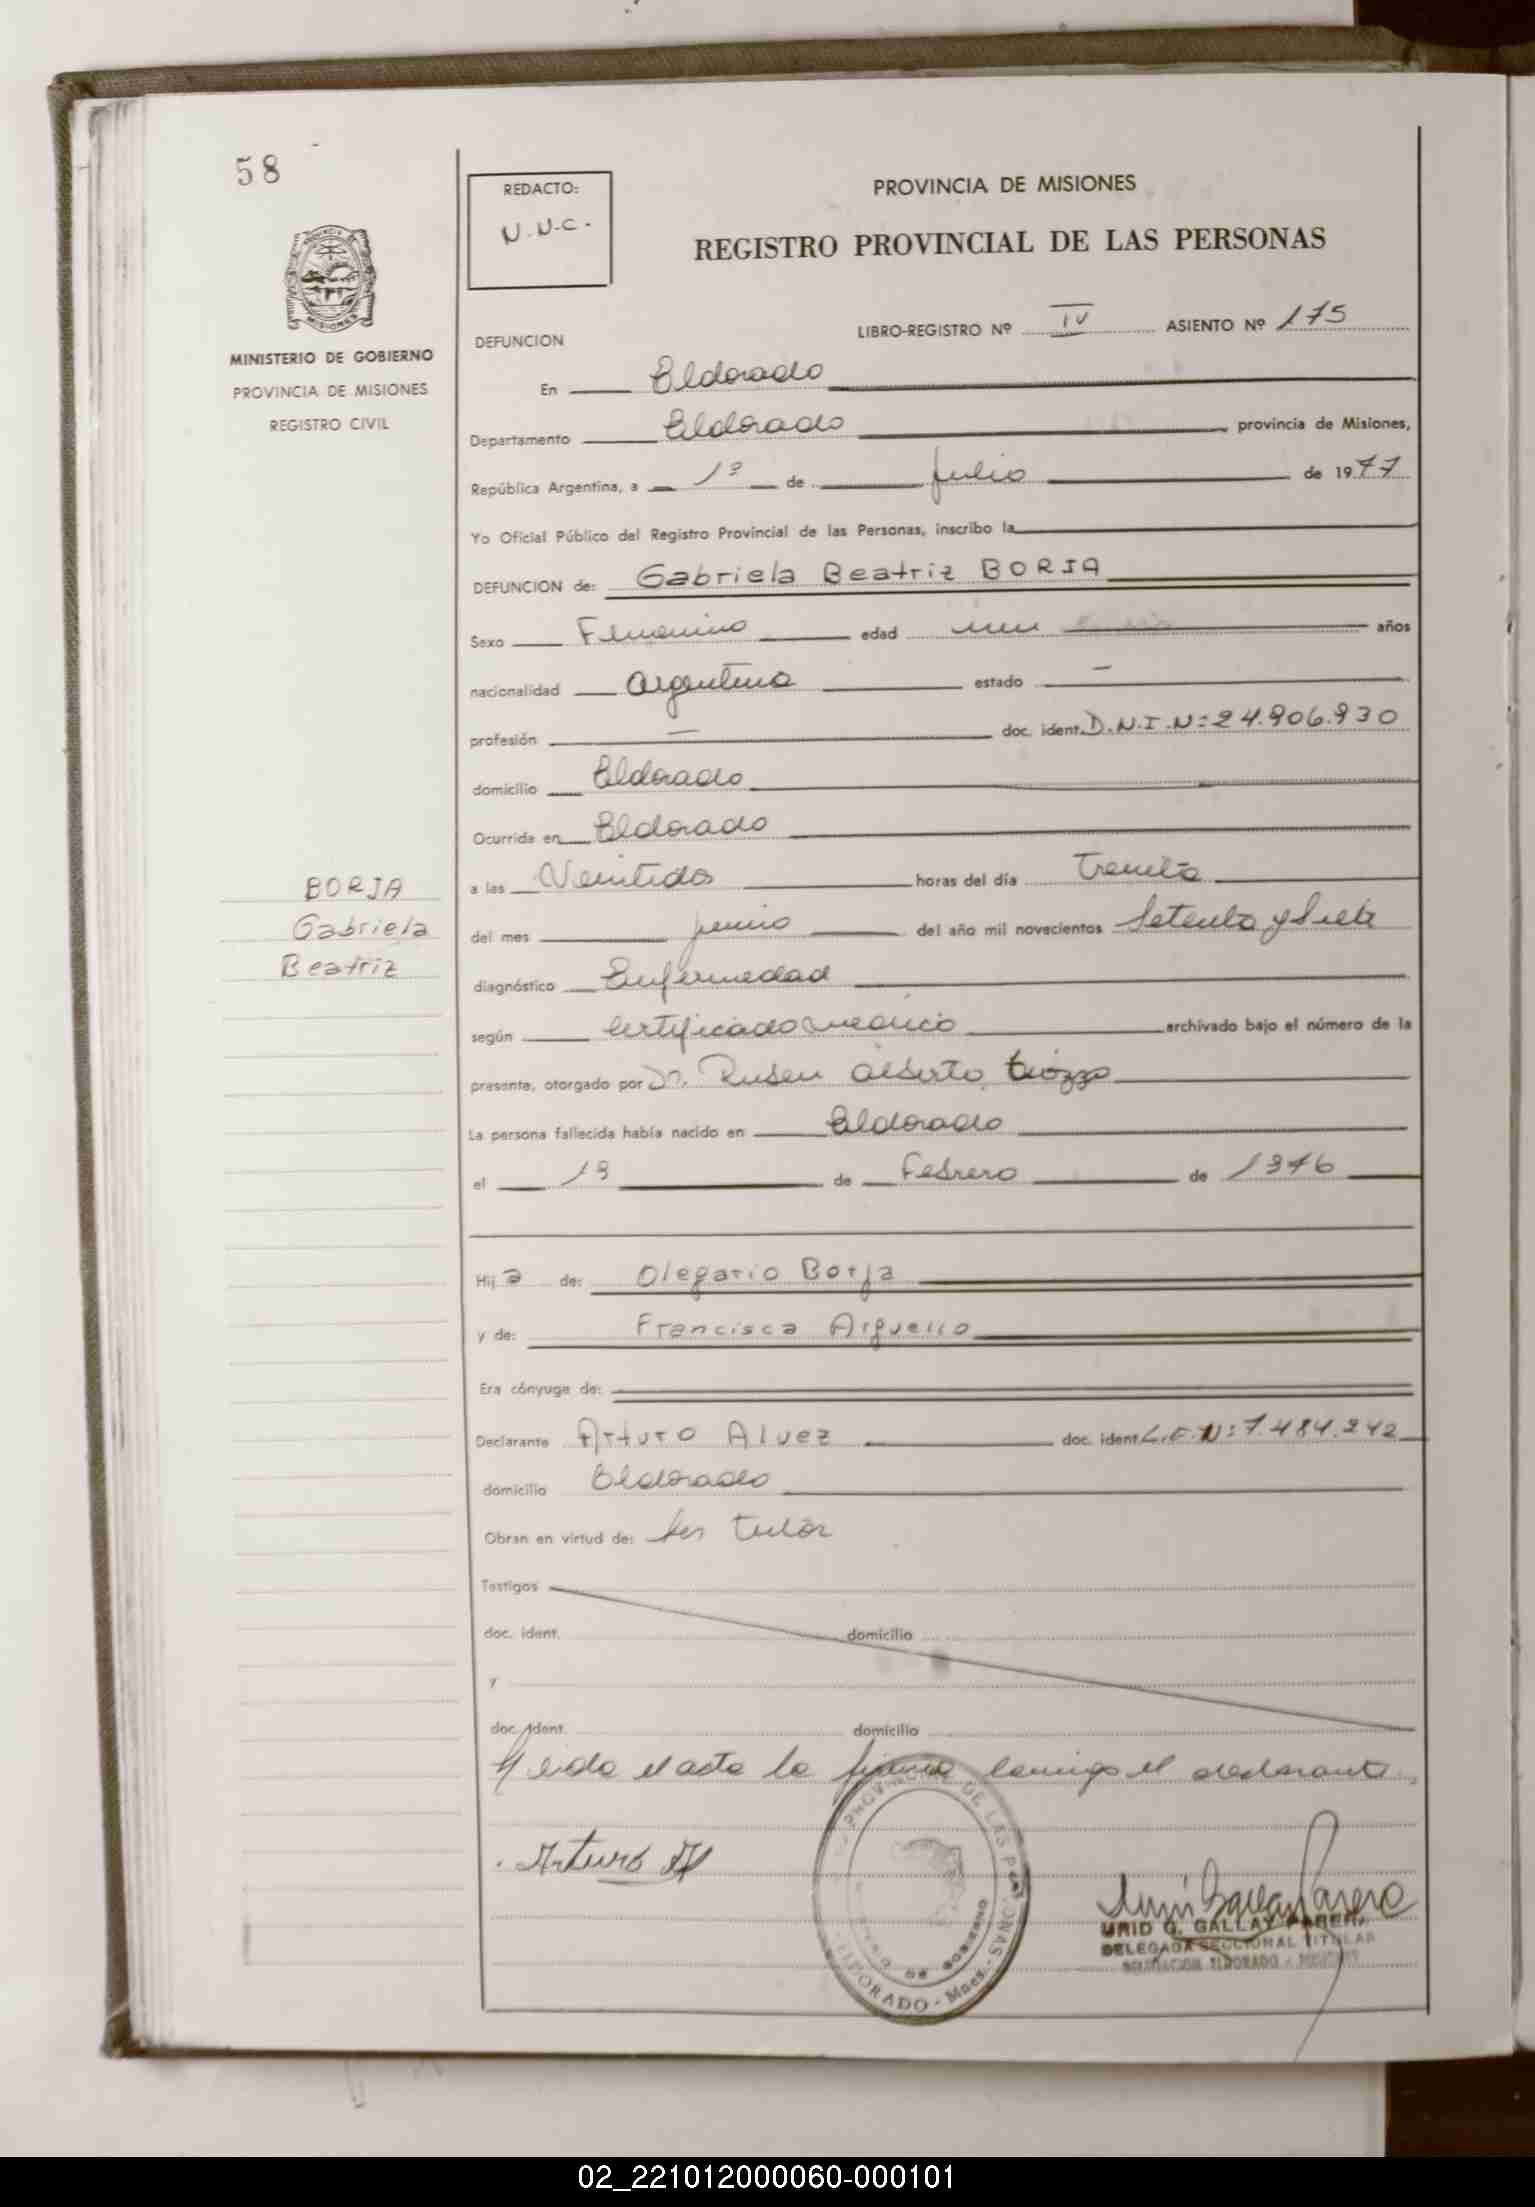 58
REDACTO:
N.N.C.-
PROVINCIA DE MISIONES
REGISTRO PROVINCIAL DE LAS PERSONAS
MINISTERIO DE GOBIERNO
PROVINCIA DE MISIONES
REGISTRO CIVIL
LIBRO-REGISTRO Nº IV ASIENTO Nº 175
DEFUNCION
En Eldorado
Departamento Eldorado provincia de Misiones,
República Argentina, a 1º de julio de 1977
Yo Oficial Público del Registro Provincial de las Personas, inscribo la
DEFUNCION de: Gabriela Beatriz BORJA
Sexo Femenino edad un años
nacionalidad Argentina estado —
profesión — doc. ident. D.N.I.Nº 24.906.930
domicilio Eldorado
Ocurrida en Eldorado
a las Veintidos horas del día Treinta
del mes junio del año mil novecientos Setenta y Siete
diagnóstico Enfermedad
según Certificado medico archivado bajo el número de la
presente, otorgado por Dr. Ruben Alberto
La persona fallecida había nacido en Eldorado
el 19 de Febrero de 1976
Hij a de: Olegario Borja
y de: Francisca Arguello
Era cónyuge de:
Declarante Arturo Alvez doc. ident L.E.Nº: 7.484.242
domicilio Eldorado
Obran en virtud de: Ser tutor
Testigos
doc. ident. domicilio
y
doc. ident. domicilio
Leida el acta la firma conmigo el declarante
BORJA
Gabriela
Beatriz
Arturo
PROVINCIAL DE LAS PERSONAS
MINISTERIO DE GOBIERNO
ELDORADO - Mnes.
G. GALLAY PARERA
DELEGADA SECCIONAL TITULAR
DELEGACION ELDORADO - MISIONES
02_221012000060-000101